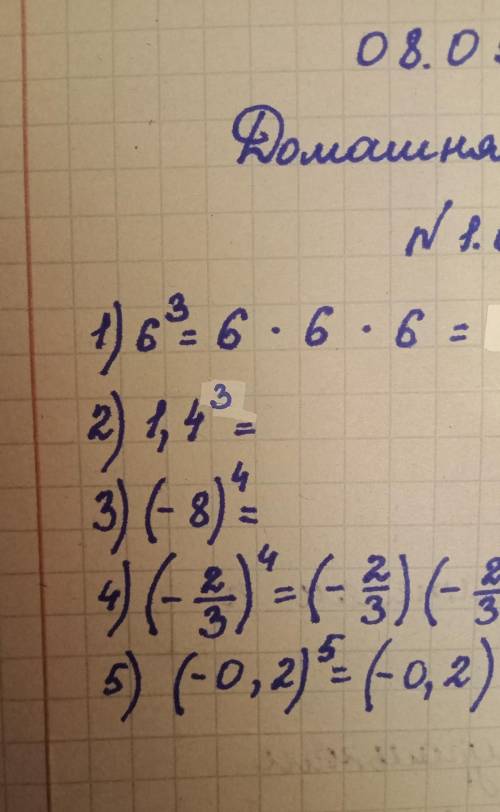 08.0
Домашня
№ 1.
1) 6³ = 6 · 6 · 6 =
2) 1,4³ =
3) (-8)⁴ =
4) (-2/3)⁴ = (-2/3) (-2/3
5) (-0,2)⁵ = (-0,2)